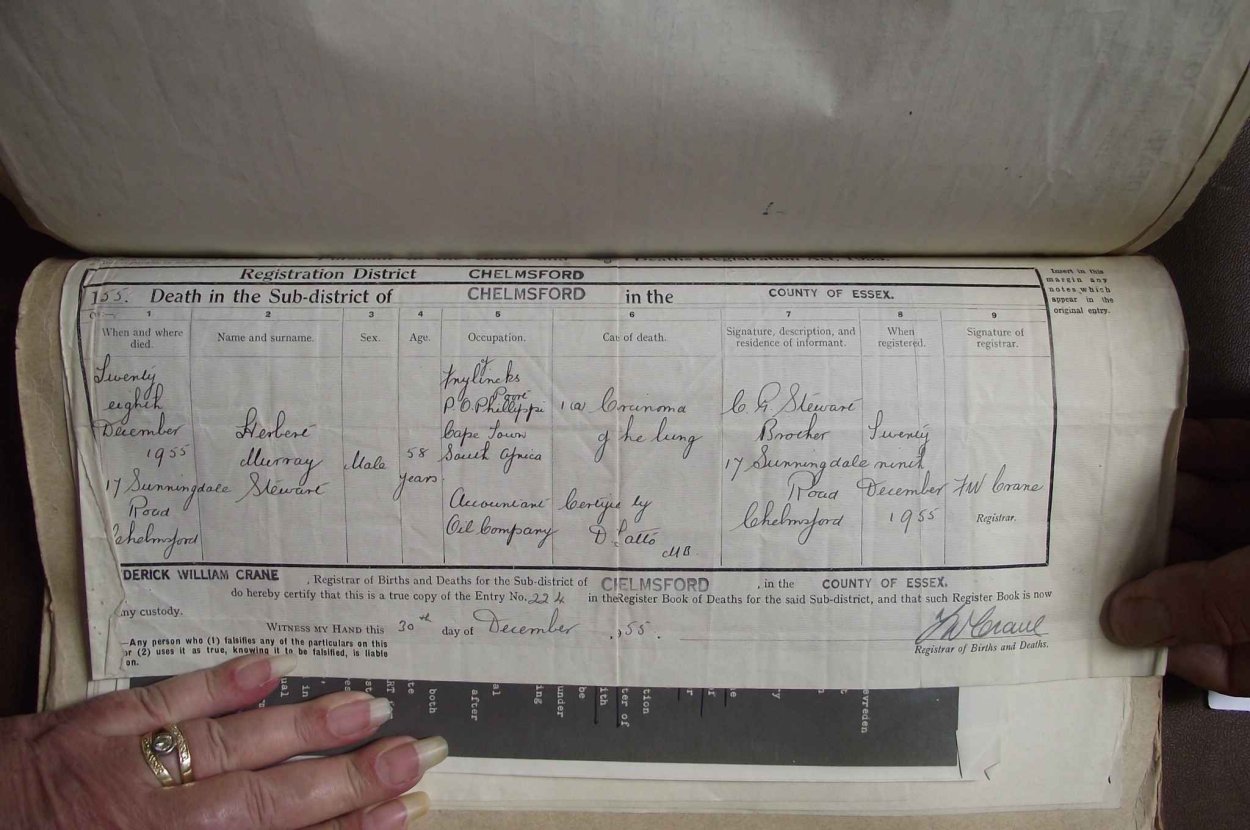 Registration District CHELMSFORD
1955. Death in the Sub-district of CHELMSFORD in the COUNTY OF ESSEX.
Insert in this
margin any
notes which
appear in the
original entry.
1 2 3 4 5 6 7 8 9
When and where
died.
Name and surname.
Sex.
Age.
Occupation.
Cause of death.
Signature, description, and
residence of informant.
When
registered.
Signature of
registrar.
Twenty
eighth
December
1955
17 Sunningdale
Road
Chelmsford
Herbert
Murray
Stewart
Male
58
years
of
P.O. Phillippi
Cape Town
South Africa
Accountant
Oil Company
1(a) Carcinoma
of the lung
Certified by
MB
C. G. Stewart
Brother
17 Sunningdale
Road
Chelmsford
Twenty
ninth
December
1955
FW Crane
Registrar.
DERICK WILLIAM CRANE, Registrar of Births and Deaths for the Sub-district of CHELMSFORD, in the COUNTY OF ESSEX.
do hereby certify that this is a true copy of the Entry No. 224 in the Register Book of Deaths for the said Sub-district, and that such Register Book is now
my custody.
WITNESS MY HAND this 30th day of December, 1955.
FW Crane
Registrar of Births and Deaths.
—Any person who (1) falsifies any of the particulars on this
or (2) uses it as true, knowing it to be falsified, is liable
on.